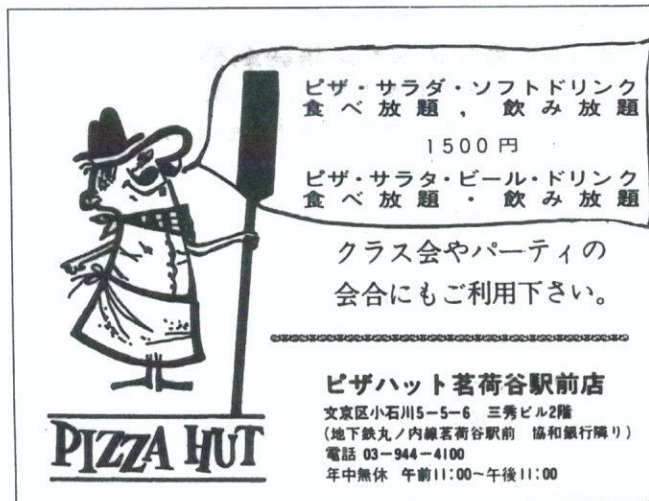 ピザ・サラダ・ソフトドリンク
食べ放題，飲み放題
1500円
ピザ・サラタ・ビール・ドリンク
食べ放題・飲み放題
クラス会やパーティの
会合にもご利用下さい。
PIZZA HUT
ピザハット茗荷谷駅前店
文京区小石川5-5-6 三秀ビル2階
(地下鉄丸ノ内線茗荷谷駅前 協和銀行隣り)
電話 03-944-4100
年中無休 午前11:00〜午後11:00